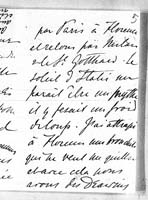 5
par Paris à Florence
et retour par Milan
et le St. Gotthard. Le
soleil d'Italie me
paraît être un mythe
il y faisait un froid
de loup. J'ai attrapé
à Florence un
qui ne veut me quitter
avec cela nous
avons des